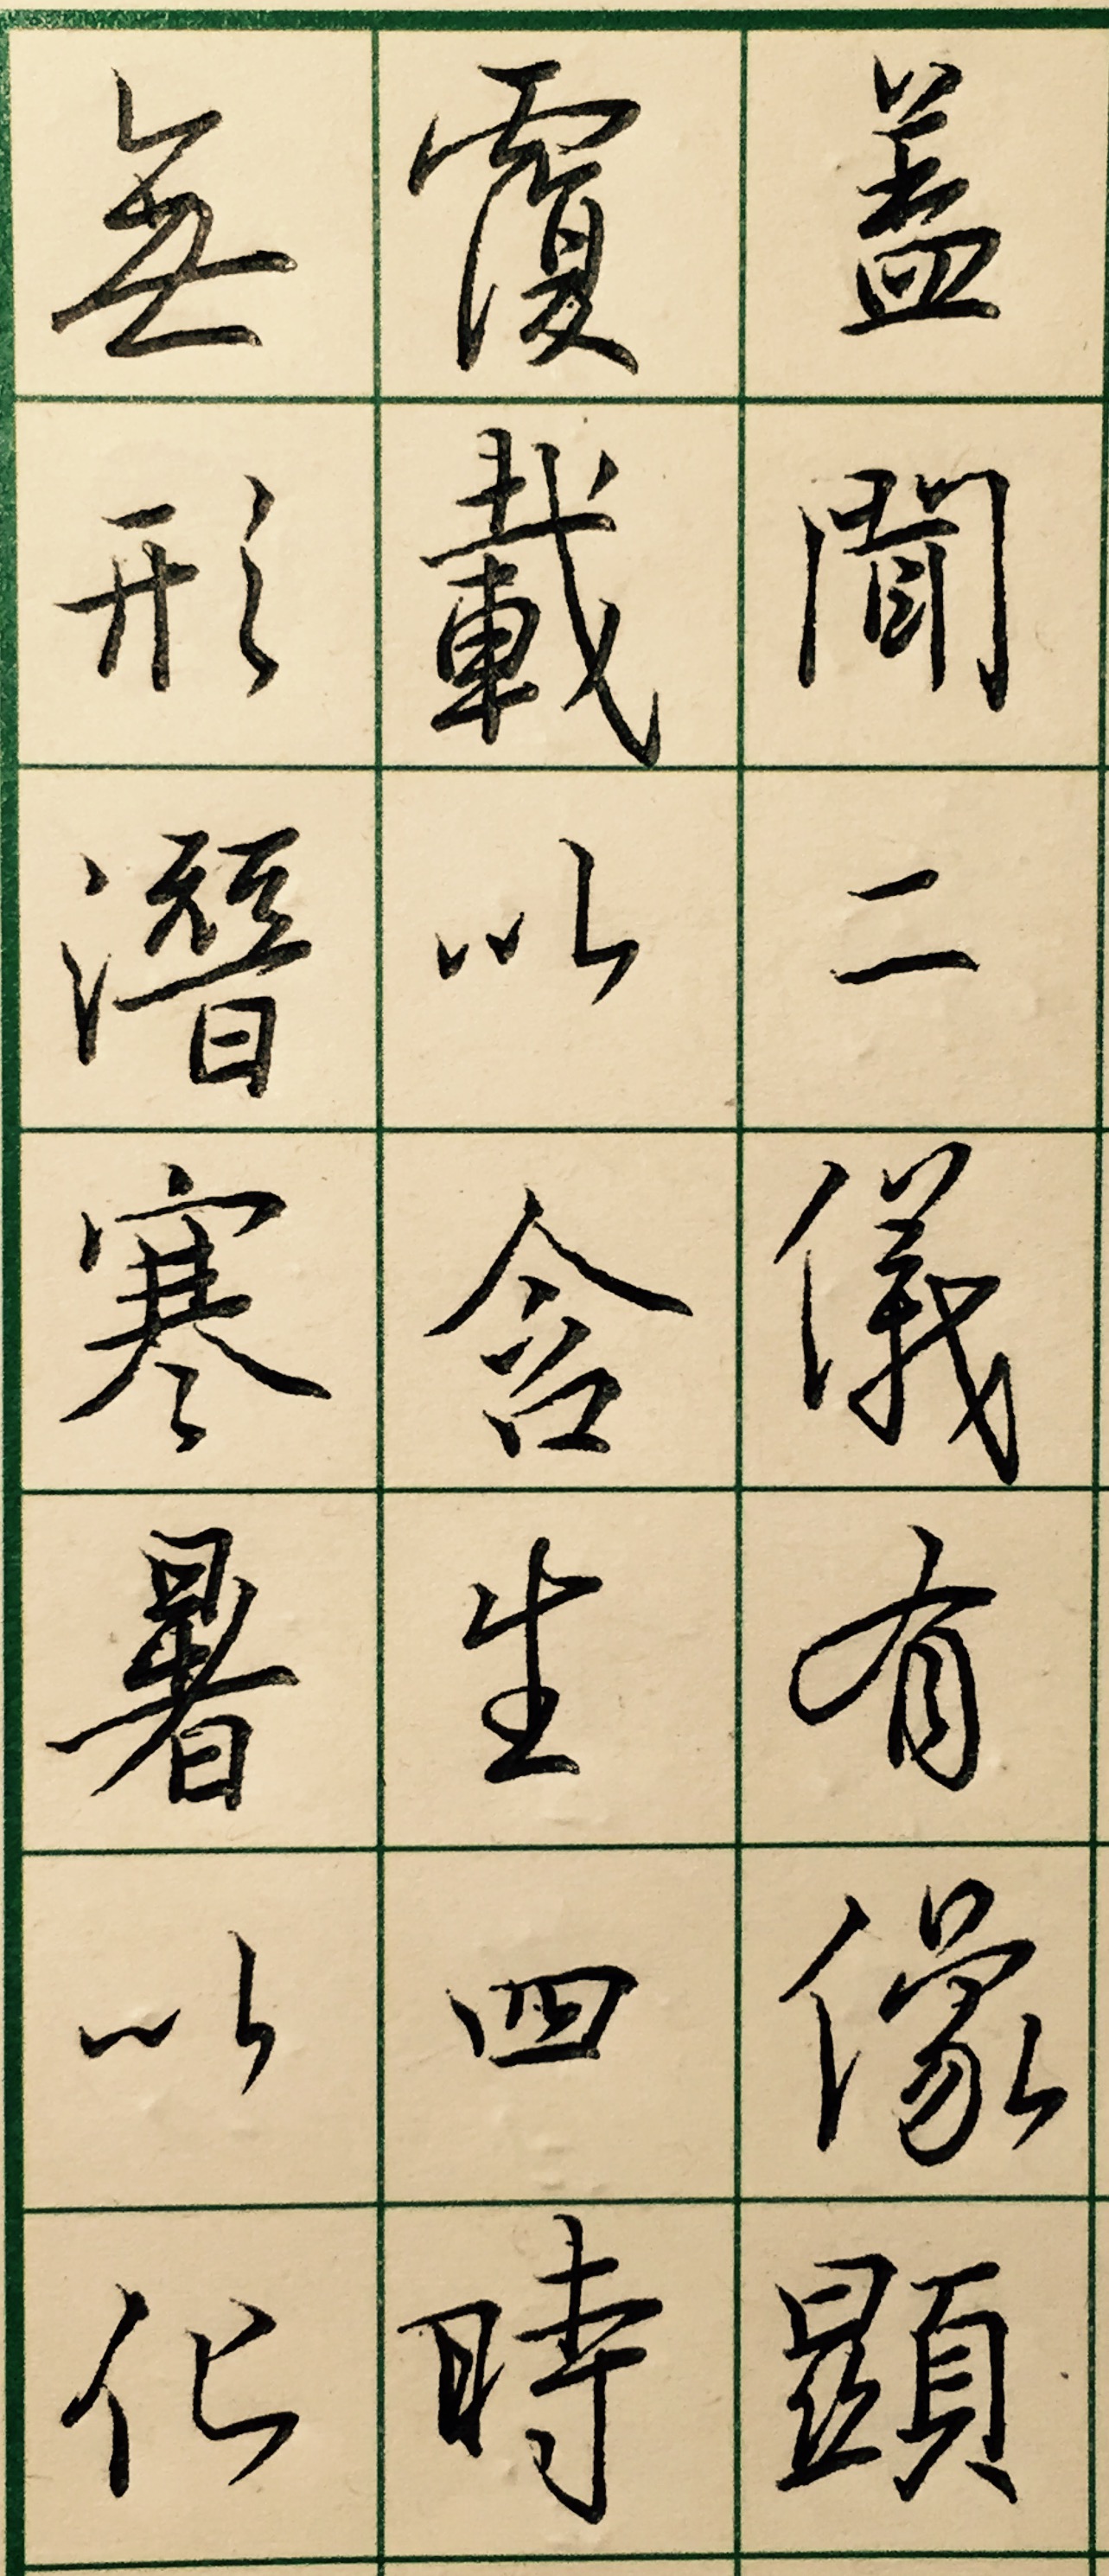 蓋聞二儀有像顯
覆載以含生四時
無形潛寒暑以化